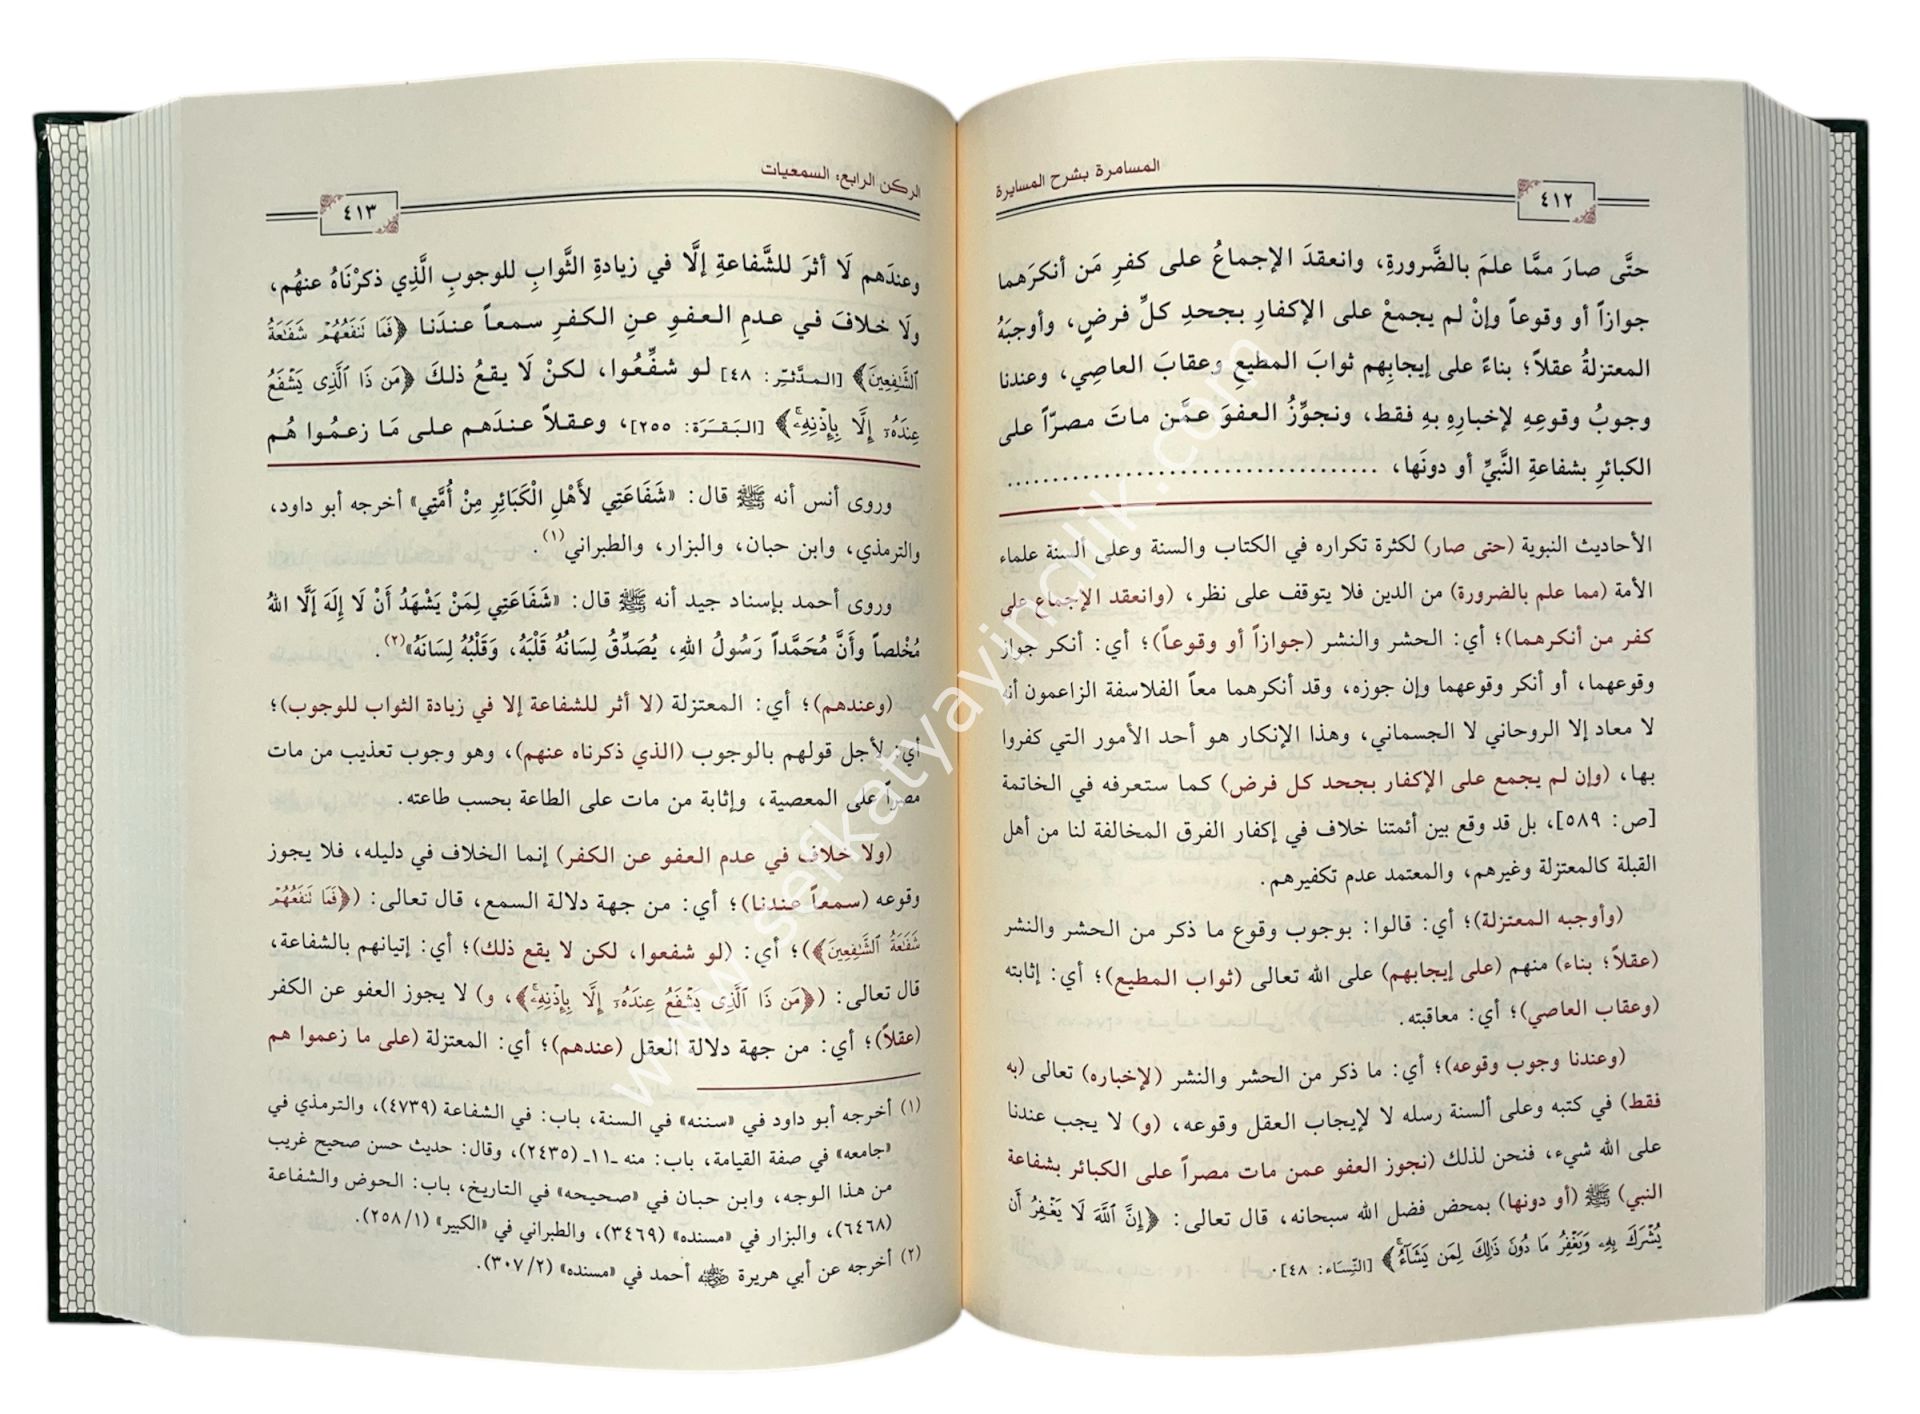 المسامرة بشرح المسايرة
٤١٢
حتَّى صارَ ممَّا علمَ بالضَّرورةِ، وانعقدَ الإجماعُ على كفرِ مَن أنكرَهما
جوازاً أو وقوعاً وإنْ لم يجمعْ على الإكفارِ بجحدِ كلِّ فرضٍ، وأوجبَهُ
المعتزلةُ عقلاً؛ بناءً على إيجابِهم ثوابَ المطيعِ وعقابَ العاصِي، وعندنا
وجوبُ وقوعِهِ لإخبارِهِ بهِ فقط، ونجوِّزُ العفوَ عمَّن ماتَ مصرّاً على
الكبائرِ بشفاعةِ النَّبيِّ أو دونَها، ....................................
الأحاديث النبوية (حتى صار) لكثرة تكراره في الكتاب والسنة وعلى ألسنة علماء
الأمة (مما علم بالضرورة) من الدين فلا يتوقف على نظر، (وانعقد الإجماع على
كفر من أنكرهما)؛ أي: الحشر والنشر (جوازاً أو وقوعاً)؛ أي: أنكر جواز
وقوعهما، أو أنكر وقوعهما وإن جوزه، وقد أنكرهما معاً الفلاسفة الزاعمون أنه
لا معاد إلا الروحاني لا الجسماني، وهذا الإنكار هو أحد الأمور التي كفروا
بها، (وإن لم يجمع على الإكفار بجحد كل فرض) كما ستعرفه في الخاتمة
[ص: ٥٨٩]، بل قد وقع بين أئمتنا خلاف في إكفار الفرق المخالفة لنا من أهل
القبلة كالمعتزلة وغيرهم، والمعتمد عدم تكفيرهم.
(وأوجبه المعتزلة)؛ أي: قالوا: بوجوب وقوع ما ذكر من الحشر والنشر
(عقلاً؛ بناء) منهم (على إيجابهم) على الله تعالى (ثواب المطيع)؛ أي: إثابته
(وعقاب العاصي)؛ أي: معاقبته.
(وعندنا وجوب وقوعه)؛ أي: ما ذكر من الحشر والنشر (لإخباره) تعالى (به
فقط) في كتبه وعلى ألسنة رسله لا لإيجاب العقل وقوعه، (و) لا يجب عندنا
على الله شيء، فنحن لذلك (نجوز العفو عمن مات مصراً على الكبائر بشفاعة
النبي) ﷺ (أو دونها) بمحض فضل الله سبحانه، قال تعالى: ﴿إِنَّ اللَّهَ لَا يَغْفِرُ أَن
يُشْرَكَ بِهِ وَيَغْفِرُ مَا دُونَ ذَلِكَ لِمَن يَشَاءُ﴾ [النِّسَاء: ٤٨].
الركن الرابع: السمعيات
٤١٣
وعندَهم لَا أثرَ للشَّفاعةِ إلَّا في زيادةِ الثَّوابِ للوجوبِ الَّذِي ذكرْنَاهُ عنهُم،
ولَا خلافَ في عدمِ العفوِ عنِ الكفرِ سمعاً عندَنا ﴿فَمَا تَنفَعُهُمْ شَفَاعَةُ
الشَّافِعِينَ﴾ [المدَّثِّر: ٤٨] لو شفِّعُوا، لكنْ لَا يقعُ ذلكَ ﴿مَن ذَا الَّذِي يَشْفَعُ
عِندَهُ إِلَّا بِإِذْنِهِ﴾ [البَقَرَة: ٢٥٥]، وعقلاً عندَهم على مَا زعمُوا هُم
وروى أنس أنه ﷺ قال: «شَفَاعَتِي لأَهْلِ الْكَبَائِرِ مِنْ أُمَّتِي» أخرجه أبو داود،
والترمذي، وابن حبان، والبزار، والطبراني(١).
وروى أحمد بإسناد جيد أنه ﷺ قال: «شَفَاعَتِي لِمَنْ يَشْهَدُ أَنْ لَا إِلَهَ إَلَّا اللهُ
مُخْلصاً وأَنَّ مُحَمَّداً رَسُولُ اللهِ، يُصَدِّقُ لِسَانُهُ قَلْبَهُ، وَقَلْبُهُ لِسَانَهُ»(٢).
(وعندهم)؛ أي: المعتزلة (لا أثر للشفاعة إلا في زيادة الثواب للوجوب)؛
أي: لأجل قولهم بالوجوب (الذي ذكرناه عنهم)، وهو وجوب تعذيب من مات
مصراً على المعصية، وإثابة من مات على الطاعة بحسب طاعته.
(ولا خلاف في عدم العفو عن الكفر) إنما الخلاف في دليله، فلا يجوز
وقوعه (سمعاً عندنا)؛ أي: من جهة دلالة السمع، قال تعالى: (﴿فَمَا تَنفَعُهُمْ
شَفَاعَةُ الشَّافِعِينَ﴾)؛ أي: (لو شفعوا، لكن لا يقع ذلك)؛ أي: إتيانهم بالشفاعة،
قال تعالى: (﴿مَن ذَا الَّذِي يَشْفَعُ عِندَهُ إِلَّا بِإِذْنِهِ﴾، و) لا يجوز العفو عن الكفر
(عقلاً)؛ أي: من جهة دلالة العقل (عندهم)؛ أي: المعتزلة (على ما زعموا هم
(١) أخرجه أبو داود في «سننه» في السنة، باب: في الشفاعة (٤٧٣٩)، والترمذي في
«جامعه» في صفة القيامة، باب: منه ـ١١ـ (٢٤٣٥)، وقال: حديث حسن صحيح غريب
من هذا الوجه، وابن حبان في «صحيحه» في التاريخ، باب: الحوض والشفاعة
(٦٤٦٨)، والبزار في «مسنده» (٣٤٦٩)، والطبراني في «الكبير» (٢٥٨/١).
(٢) أخرجه عن أبي هريرة ﷺ أحمد في «مسنده» (٣٠٧/٢).
www.serkatyayincilik.com